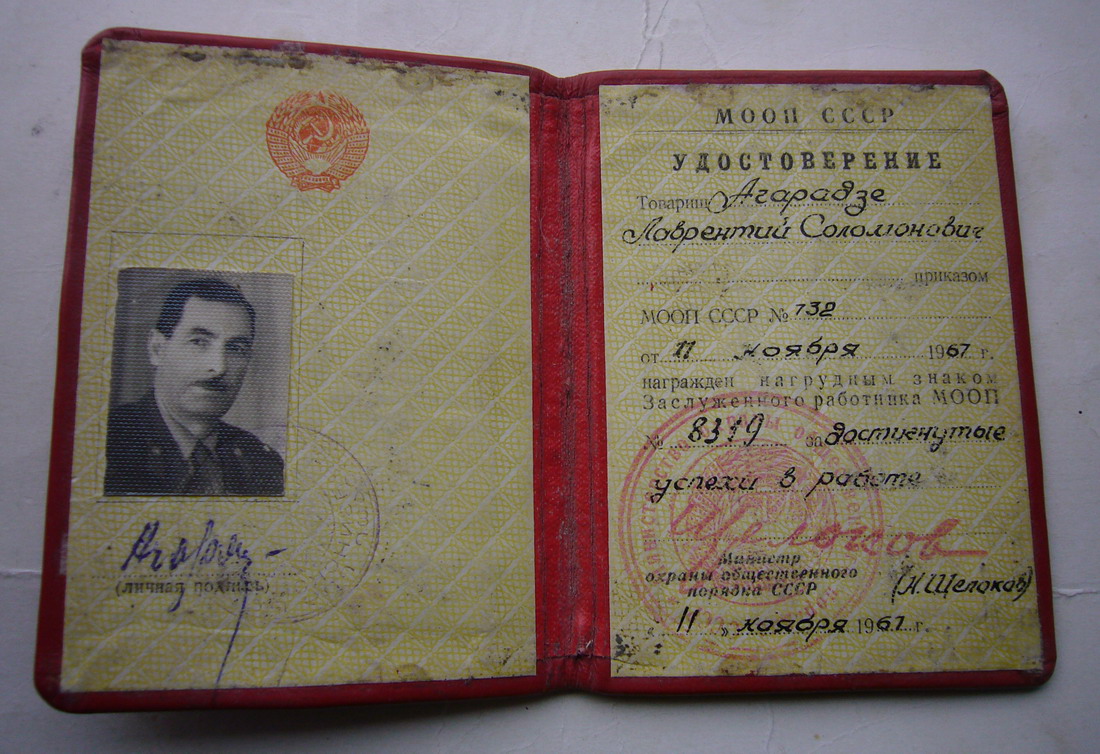 Агарадз
(личная подпись)
МООП СССР
УДОСТОВЕРЕНИЕ
Товарищ Агарадзе
Лаврентий Соломонович
приказом
МООП СССР № 738
от 11 ноября 1967 г.
награжден нагрудным знаком
Заслуженного работника МООП
№ 8319 за достигнутые
успехи в работе
Щелоков
Министр
охраны общественного
порядка СССР (Н. Щелоков)
" 11 " ноября 1967 г.